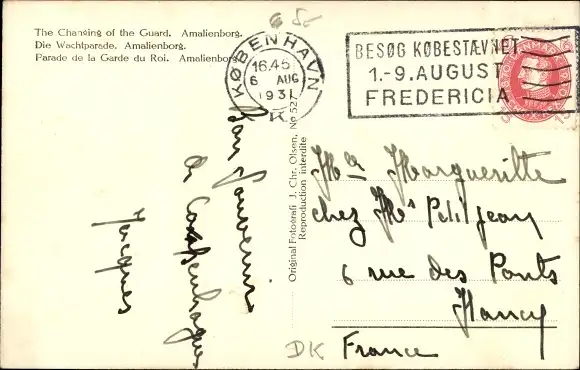 The Changing of the Guard. Amalienborg.
Die Wachtparade. Amalienborg.
Parade de la Garde du Roi. Amalienborg.
KØBENHAVN
16.45
6 AUG
1931
K.
BESØG KØBESTÆVNET
1.-9. AUGUST
FREDERICIA
Bon Souvenir
de Copenhague
Jacques
Original Fotografi J. Chr. Olsen, No 527
Reproduction interdite
Mlle Margueritte
chez Mr Petitjean
6 rue des Ponts
Nancy
France
DK